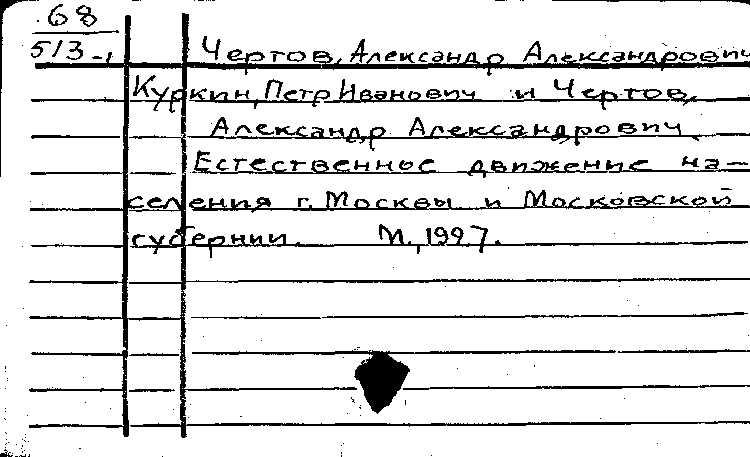 68
513-1
Чертов, Александр Александрович
Куркин, Петр Иванович и Чертов,
Александр Александрович.
Естественное движение на-
селения г. Москвы и Московской
губернии. М., 1927.